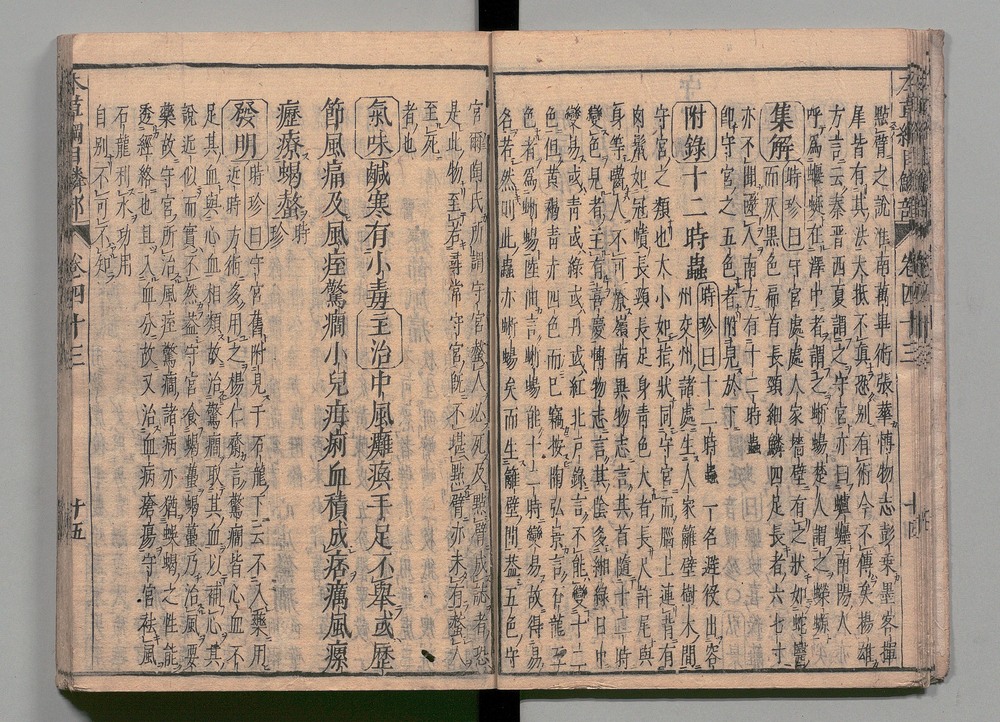 點臂之說淮南萬畢術張華博物志彭乘墨客揮
犀皆有其法大抵不真恐別有術今不傳矣揚雄
方言云秦晉西夏謂之守宮亦曰蠦𧓋南陽人
呼為蝘蜓在澤中者謂之蜥蜴楚人謂之蠑螈
集解時珍曰守宮處處人家墻壁有之狀如蛇醫
而灰黑色扁首長頸細鱗四足長者六七寸
亦不聞噬人南方有十二時蟲
即守宮之五色者附見於下
附錄十二時蟲時珍曰十二時蟲一名避役出容
州交州諸處生人家籬壁樹木間
守宮之類也大小如指狀同守宮而腦上連背有
肉鬣如冠幘長頸長足身青色大者長尺許尾與
身等囓人不可療嶺南異物志言其首隨十二時
變色見者主有喜慶博物志言其陰多緗綠日中
變易或青或綠或丹或紅北戶錄言不能變十二
色但黃褐青赤四色而已竊按陶弘景言石龍五
色者為蜥蜴陸佃言蜥蜴能十二時變易故得易
名若然則此蟲亦蜥蜴矣而生籬壁間蓋五色守
宮爾陶氏所謂守宮螫人必死及點臂成誌者恐
是此物至若尋常守宮既不堪點臂亦未有螫人
至死
者也
氣味鹹寒有小毒主治中風癱瘓手足不舉或歷
節風痛及風痓驚癇小兒疳痢血積成痞癘風瘰
癧療蝎螫時珍
發明時珍曰守宮舊附見于石龍下云不入藥用
近時方術多用之楊仁齋言驚癇皆心血不
足其血與心血相類故治驚癇取其血以補心其
說近似而實不然蓋守宮食蝎蠆蝎蠆乃治風要
藥故守宮所治風痓驚癇諸病亦猶蜈蝎之性能
透經絡也且入血分故又治血病瘡瘍守宮祛風
石龍利水功用
自別不可不知
本草綱目鱗部 卷四十三 十五